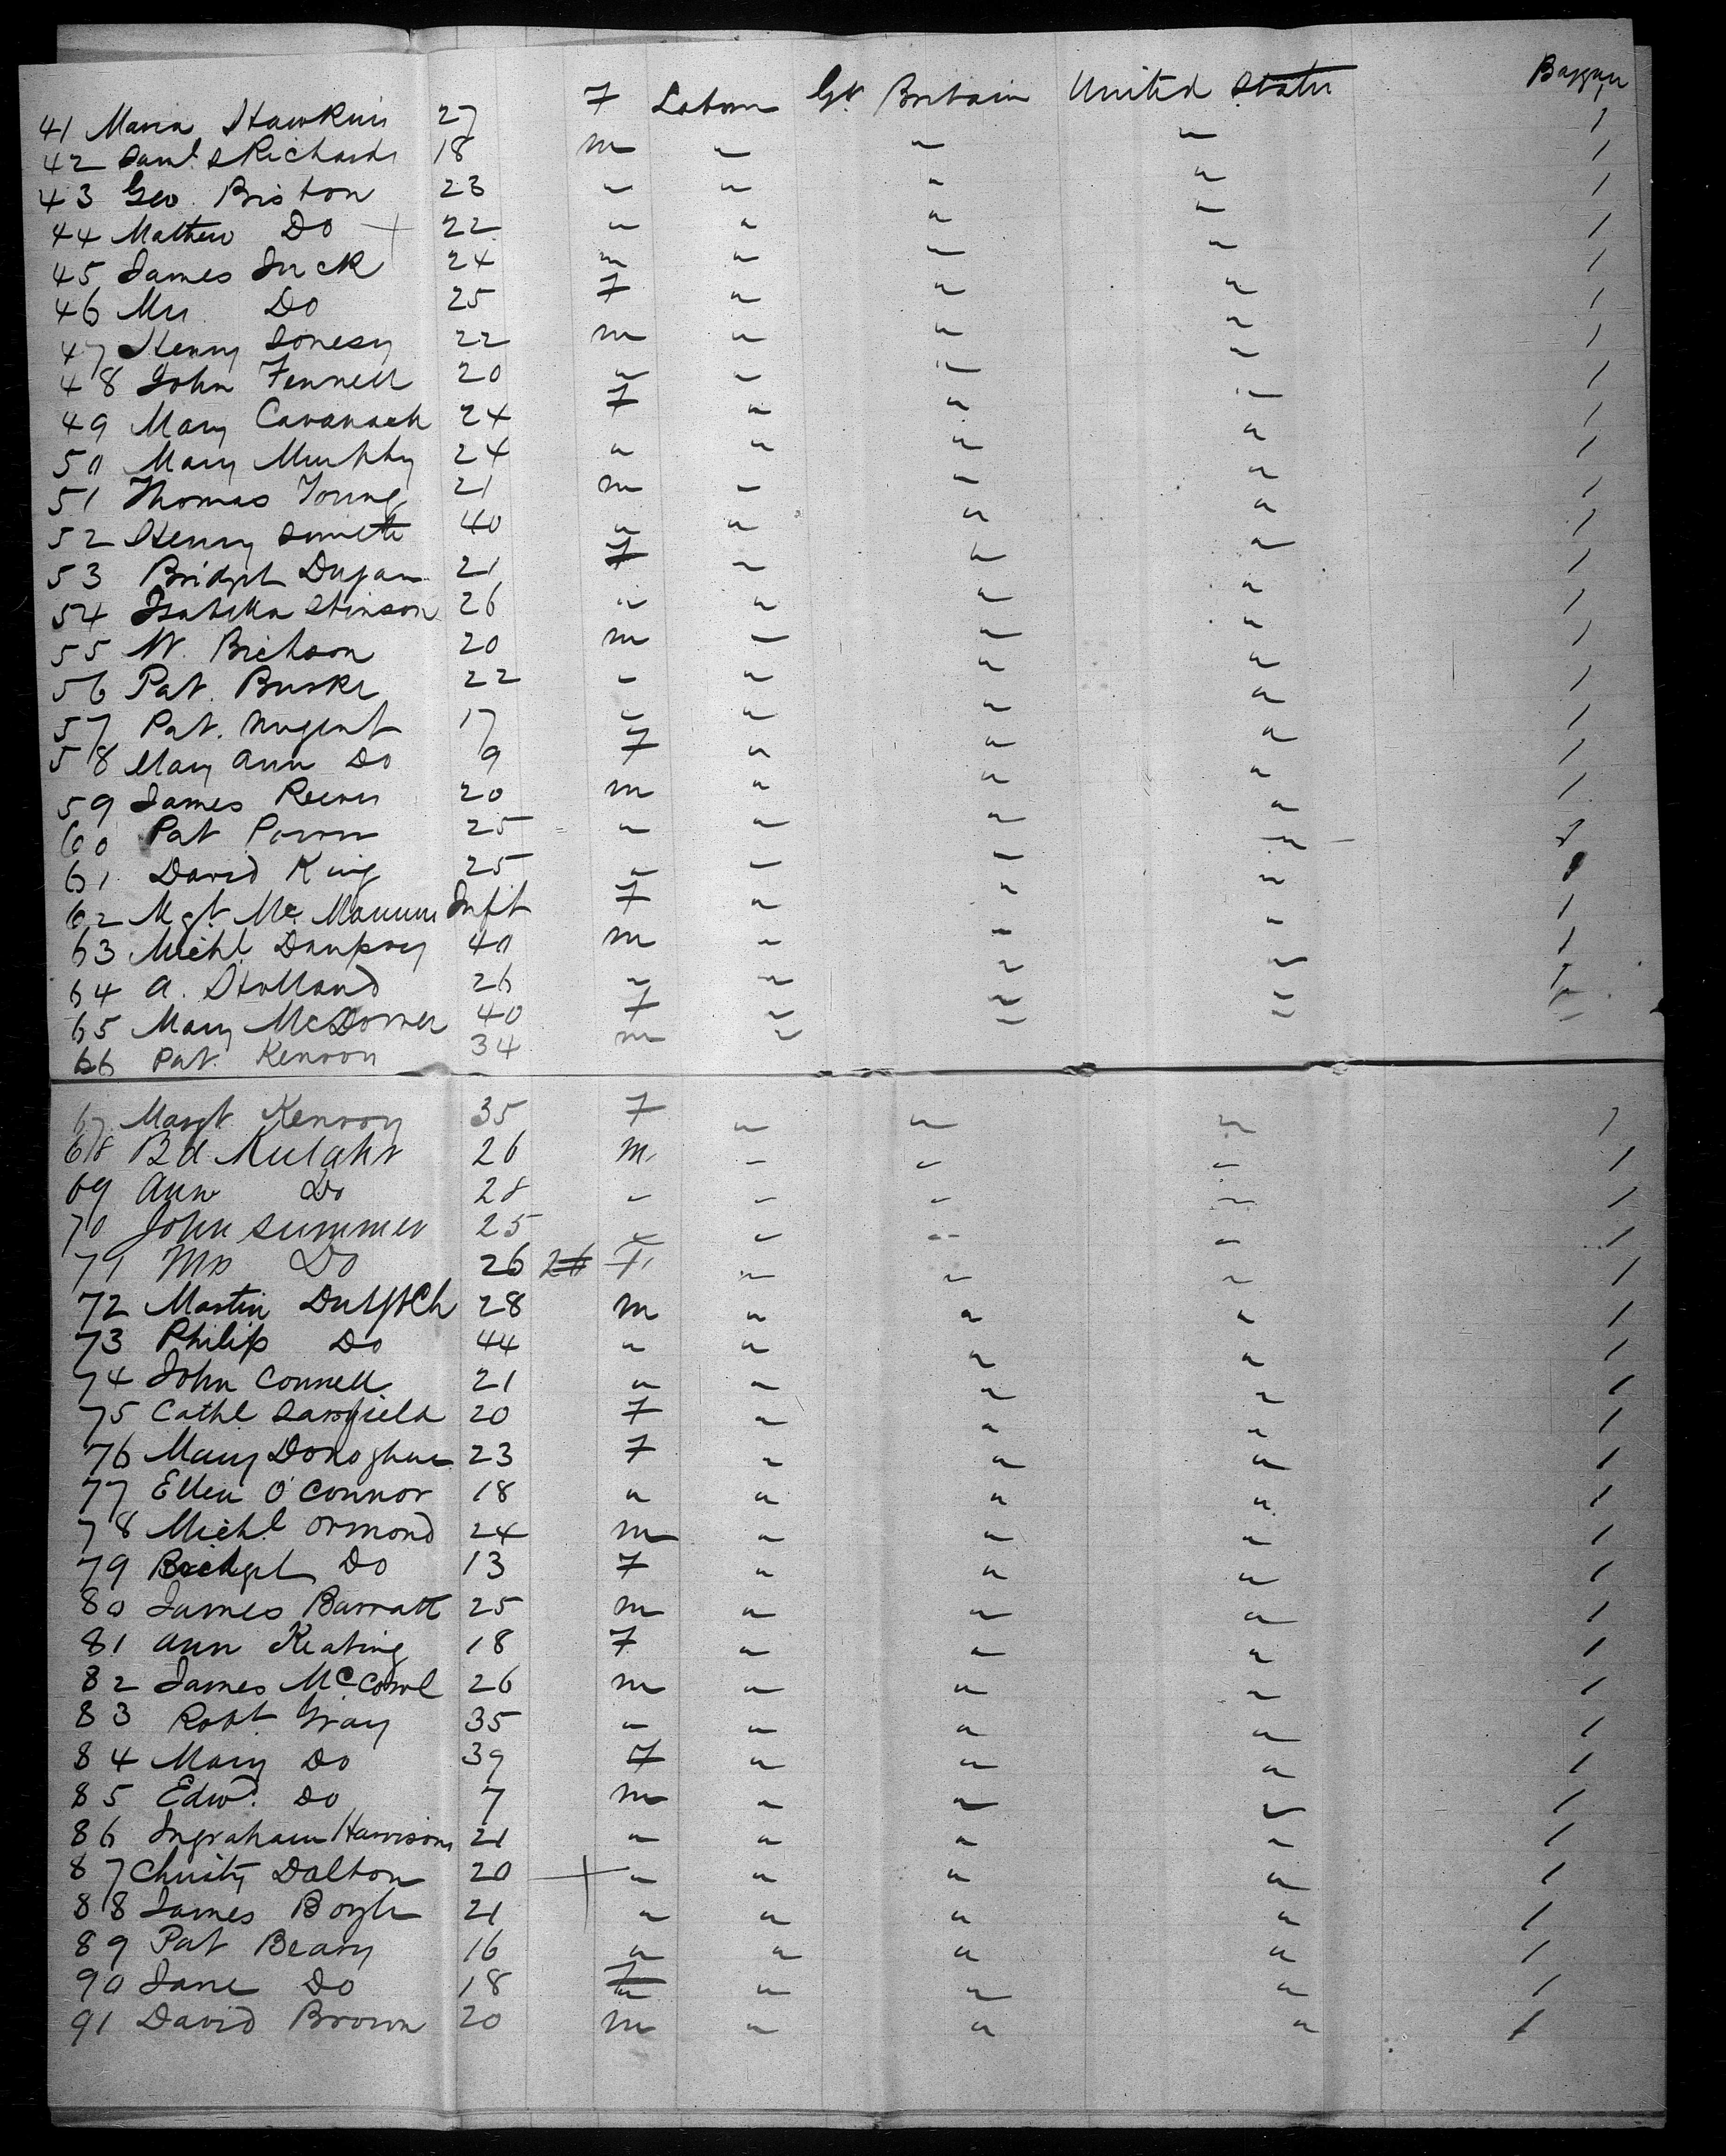 Baggage
41 Maria Hawkins 27 F Labour Gt Britain United States 1
42 Saml Richards 18 m " " " 1
43 Geo. Briston 23 " " " " 1
44 Mathew Do + 22 " " " " 1
45 James 24 m " " " 1
46 Mrs Do 25 F " " " 1
47 Henry 22 m " " " 1
48 John Fennell 20 " " " " 1
49 Mary Cavanach 24 F " " " 1
50 Mary Murphy 24 " " " " 1
51 Thomas Young 21 m " " " 1
52 Henry Smith 40 " " " " 1
53 Bridget Dugan 21 F " " " 1
54 Isabella Stinson 26 " " " " 1
55 W. 20 m " " " 1
56 Pat. Burke 22 " " " " 1
57 Pat. Nugent 17 " " " " 1
58 Mary Ann Do 9 F " " " 1
59 James Reeves 20 m " " " 1
60 Pat Power 25 " " " " 1
61 David King 25 " " " " 1
62 Mgt Mc Manus Inft F " " " 1
63 Michl Dempsey 40 m " " " 1
64 A. Holland 26 " " " " 1
65 Mary 40 F " " "
66 Pat. Kenroy 34 m " " "
67 Margt Kenroy 35 F " " " 1
68 Bd 26 m " " " 1
69 Ann Do 28 " " " " 1
70 John Summer 25 " " " " 1
71 Mrs Do 26 26 F " " " 1
72 Martin 28 m " " " 1
73 Philip Do 44 " " " " 1
74 John Connell 21 " " " " 1
75 Cathl Sarsfield 20 F " " " 1
76 Mary Donoghue 23 F " " " 1
77 Ellen O'Connor 18 " " " " 1
78 Michl Ormond 24 m " " " 1
79 Bridget Do 13 F " " " 1
80 James Barratt 25 m " " " 1
81 Ann Keating 18 F " " " 1
82 James McCowl 26 m " " " 1
83 Robt Gray 35 " " " " 1
84 Mary Do 39 F " " " 1
85 Edwd. Do 7 m " " " 1
86 Ingraham Harrison 21 " " " " 1
87 Christy Dalton 20 + " " " " 1
88 James Boyle 21 " " " " 1
89 Pat Beary 16 " " " " 1
90 Jane Do 18 F " " " 1
91 David Brown 20 m " " " 1